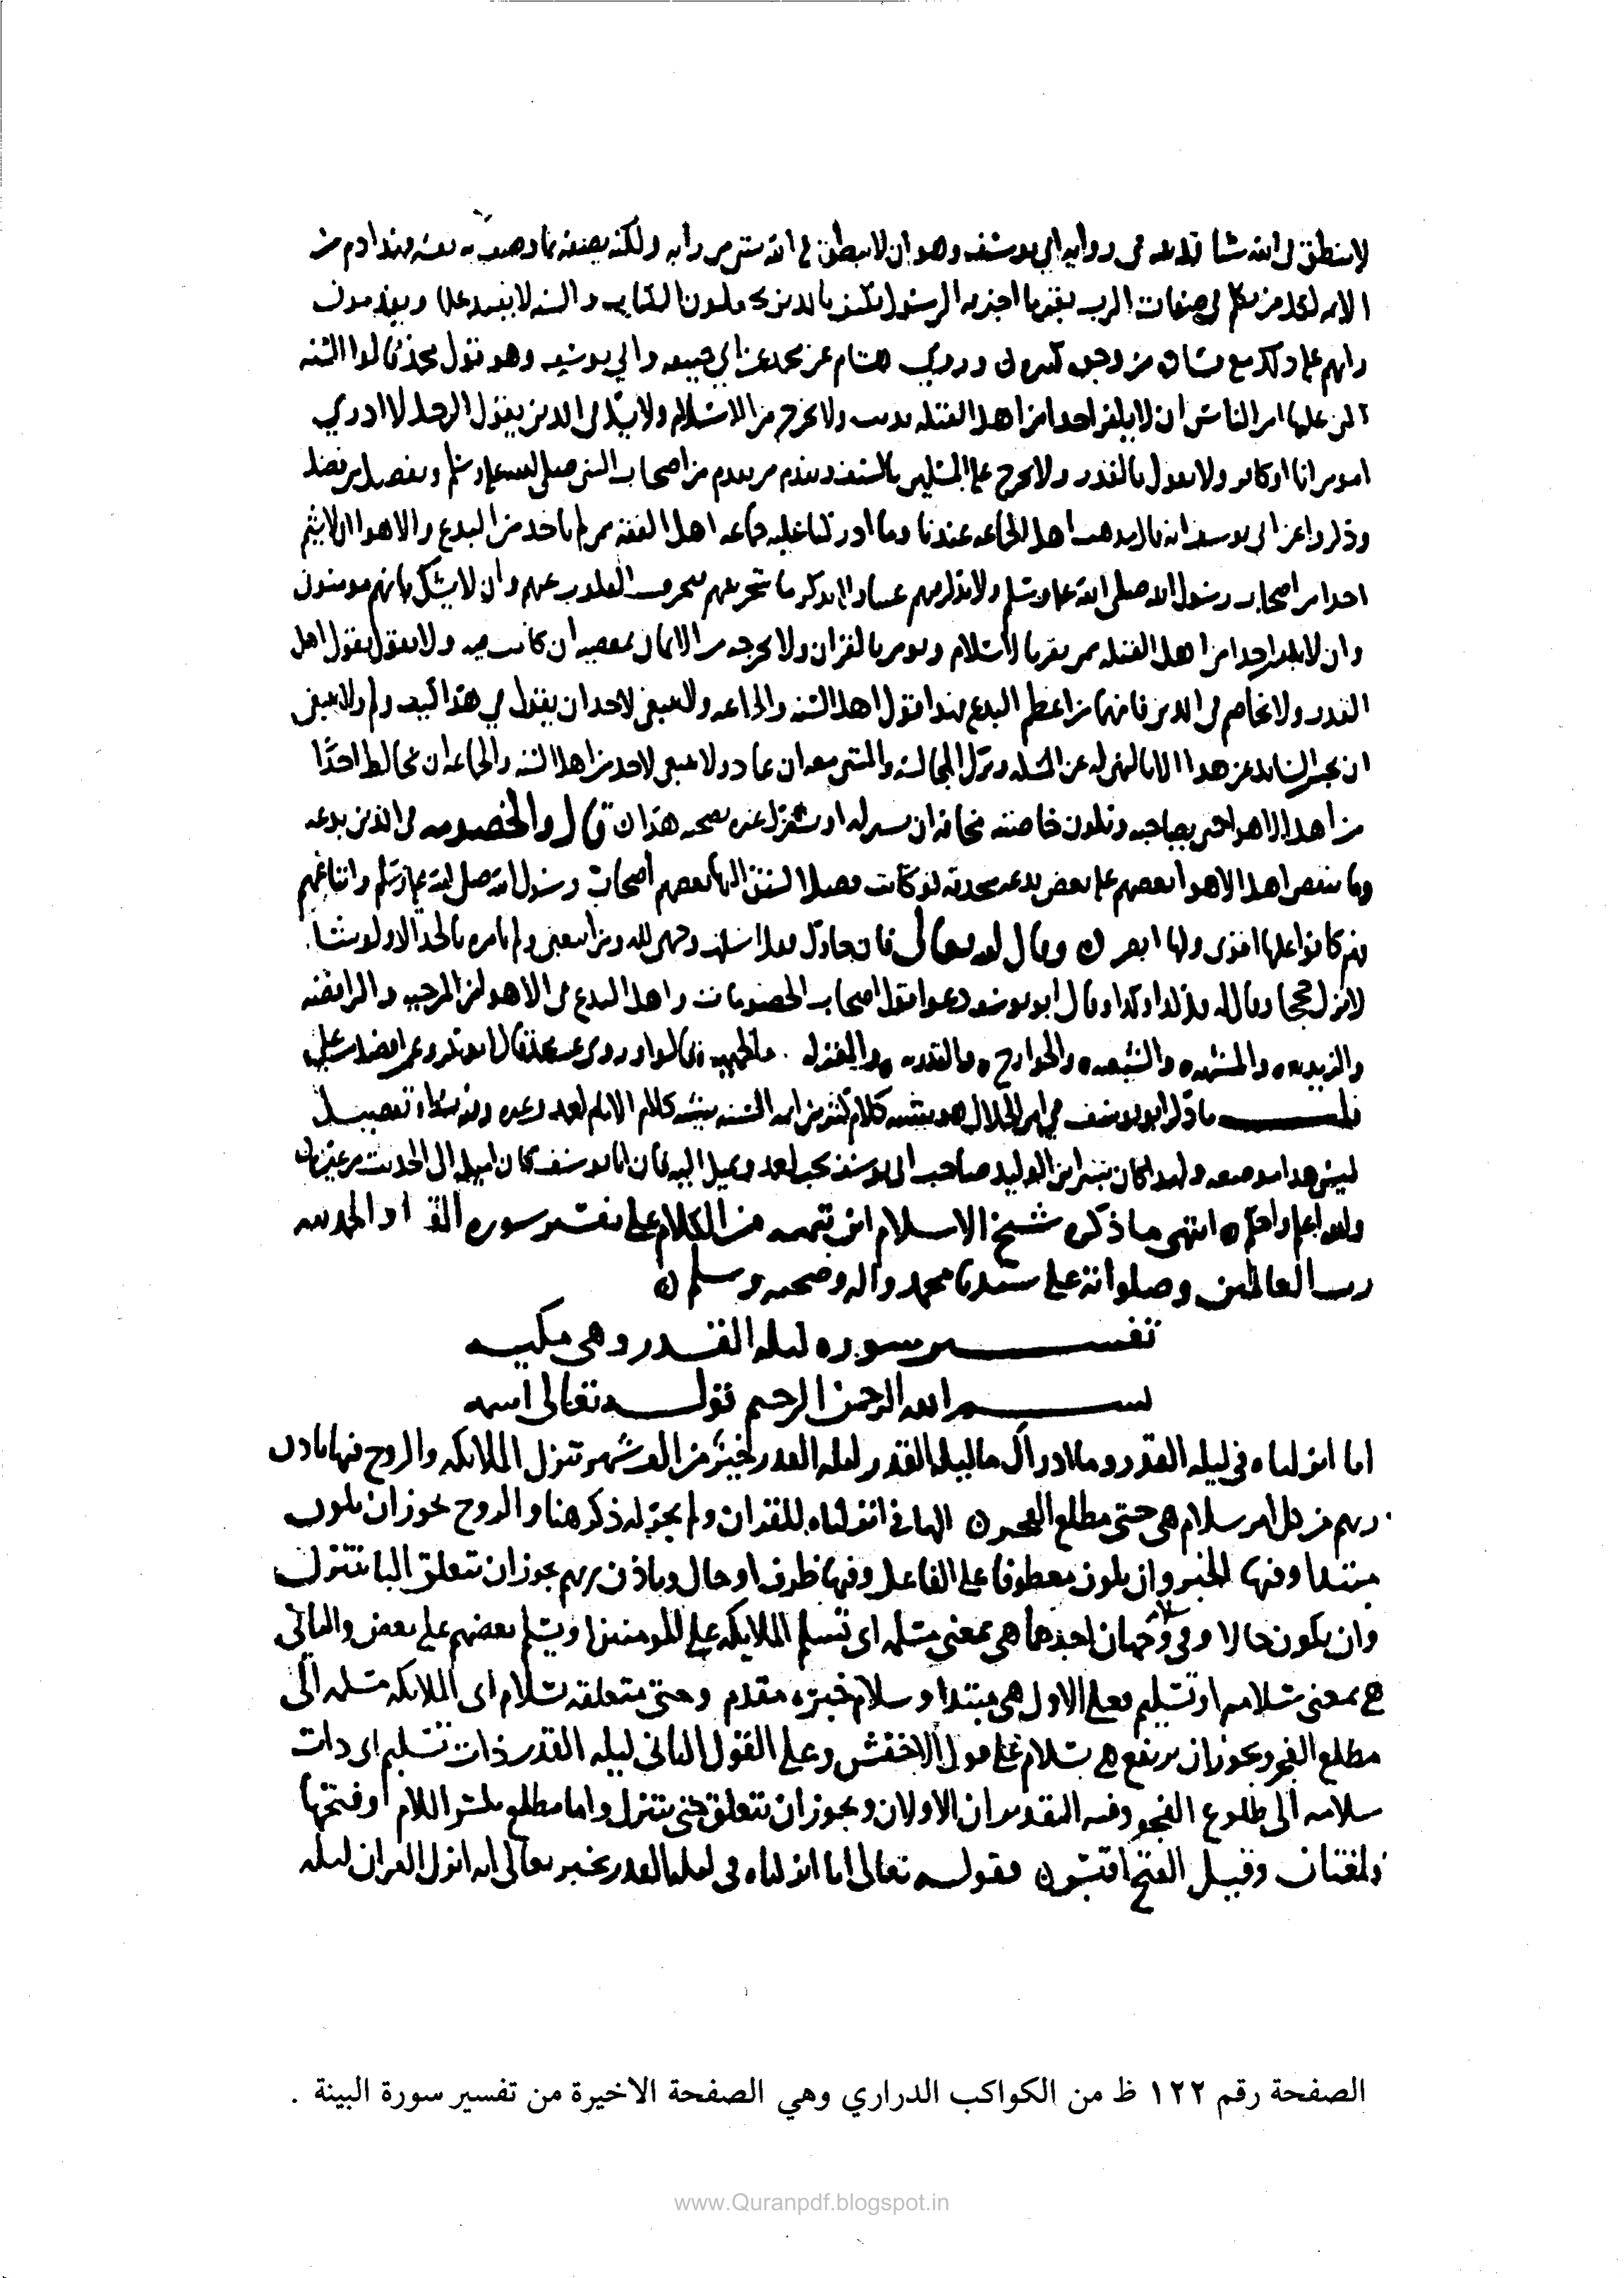 لا ينطق في الله شيئا في روايه ابي يوسف وهو ان لا ينطق في الله بشي من رايه ولكنه يصفه بما وصف به نفسه فهذا ذم من
الايمه لكل من تكلم في صفات الرب بغير ما اخبر به الرسول فكيف بالذين يجعلون الكتاب والسنه لا يفيد علما ويقدمون
رايهم على ذلك مع فساده من وجوه كثيره وروي هشام عن محمد عن ابي حنيفه وابي يوسف وهو قول محمد قالوا السنه
التي عليها امر الناس ان لا يكفر احدا من اهل القبله بذنب ولا يخرج من الاسلام ولا يشك في الدين يقول الرجل لا ادري
امومن انا او كافر ولا يقول بالقدر ولا يخرج على المسلمين بالسيف ويقدم من يقدم من اصحاب النبي صلى الله عليه وسلم ويفضل من فضل
وذكروا عن ابي يوسف انه قال مذهب اهل الجماعه عندنا وما ادركنا عليه جماعه اهل الفقه ممن لم ياخذ من البدع والاهوا ان لا يشتم
احدا من اصحاب رسول الله صلى الله عليه وسلم ولا يذكر فيهم عيبا ولا يذكر ما شجر بينهم فيحرف القلوب عنهم وان لا يشك بانهم مومنون
وان لا يكفر احدا من اهل القبله ممن يقر بالاسلام ويومن بالقران ولا يخرجه من الايمان بمعصيه ان كانت فيه ولا يقول بقول اهل
القدر ولا يخاصم في الدين فانها من اعظم البدع فهذا قول اهل السنه والجماعه ولا ينبغي لاحد ان يقول في هذا كيف ولم ولا ينبغي
ان يخبر السائل عن هذا الا بالنهي له عن المسله وترك المجالسه والمشي معه ان عاد ولا ينبغي لاحد من اهل السنه والجماعه ان يخالط احدًا
من اهل الاهوا حتى يصاحبه وتكون خاصته مخافه ان يستزله او يستزل غيره بصحبه هذا ن قال والخصومه في الدين بدعه
وما ينقض اهل الاهوا بعضهم على بعض بدعه محدثه لو كانت فضلا لسبق اليها بعضهم اصحاب رسول الله صلى الله عليه وسلم واتباعهم
فهم كانوا عليها اقوى ولها ابصر ن وقال الله تعالى فان حاجوك فقل اسلمت وجهي لله ومن اتبعن ولم يامره بالجدل ولو شا
لانزل حججا وقال له قل كذا وكذا وقال ابو يوسف دعوا قول اصحاب الخصومات واهل البدع في الاهوا من المرجيه والرافضه
والزيديه والمشبهه والشيعه والخوارج والقدريه والمعتزله والجهميه
قلت ما ذكره ابو يوسف في امر الجدال هو يشبه كلام كثير من ايمه السنه يشبه كلام الامام احمد وغيره وفيه تفصيل
ليس هذا موضعه ولهذا كان بشر ابن الوليد صاحب ابي يوسف يحب احمد ويميل اليه فان ابا يوسف كان اميل الى الحديث من غيره ن
والله اعلم واحكم ن انتهى ما ذكره شيخ الاسلام ابن تيميه من الكلام على تفسير سوره القلم والحمد لله
رب العالمين وصلواته على سيدنا محمد واله وصحبه وسلم ن
تفسير سوره ليله القدر وهي مكيه
بسم الله الرحمن الرحيم قوله تعالى اسمه
انا انزلناه في ليله القدر وما ادراك ما ليله القدر ليله القدر خير من الف شهر تنزل الملائكه والروح فيها باذن
ربهم من كل امر سلام هي حتى مطلع الفجر ن الها في انزلناه للقران ولم يجر له ذكر هنا والروح يجوز ان يكون
مبتدا وفيها الخبر وان يكون معطوفا على الفاعل وفيها ظرف او حال وباذن ربهم يجوز ان تتعلق البا بتنزل
وان يكون حالا وفي سلام وجهان احدهما هي بمعنى مسلمه اي تسلم الملائكه على المومنين او يسلم بعضهم على بعض والثاني
هي بمعنى سلامه او تسليم فعلى الاول هي مبتدا وسلام خبره مقدم وحتى متعلقه بسلام اي الملائكه مسلمه الى
مطلع الفجر ويجوز ان يرتفع هي بسلام على قول الاخفش وعلى القول الثاني ليله القدر ذات تسليم اي ذات
سلامه الى طلوع الفجر وفيه التقديران الاولان ويجوز ان تتعلق حتى بتنزل واما مطلع بكسر اللام او فتحها
فلغتان وقيل الفتح اقيس ن فقوله تعالى انا انزلناه في ليله القدر يخبر تعالى انه انزل القران ليله
الصفحة رقم ١٢٢ ظ من الكواكب الدراري وهي الصفحة الاخيرة من تفسير سورة البينة .
www.Quranpdf.blogspot.in